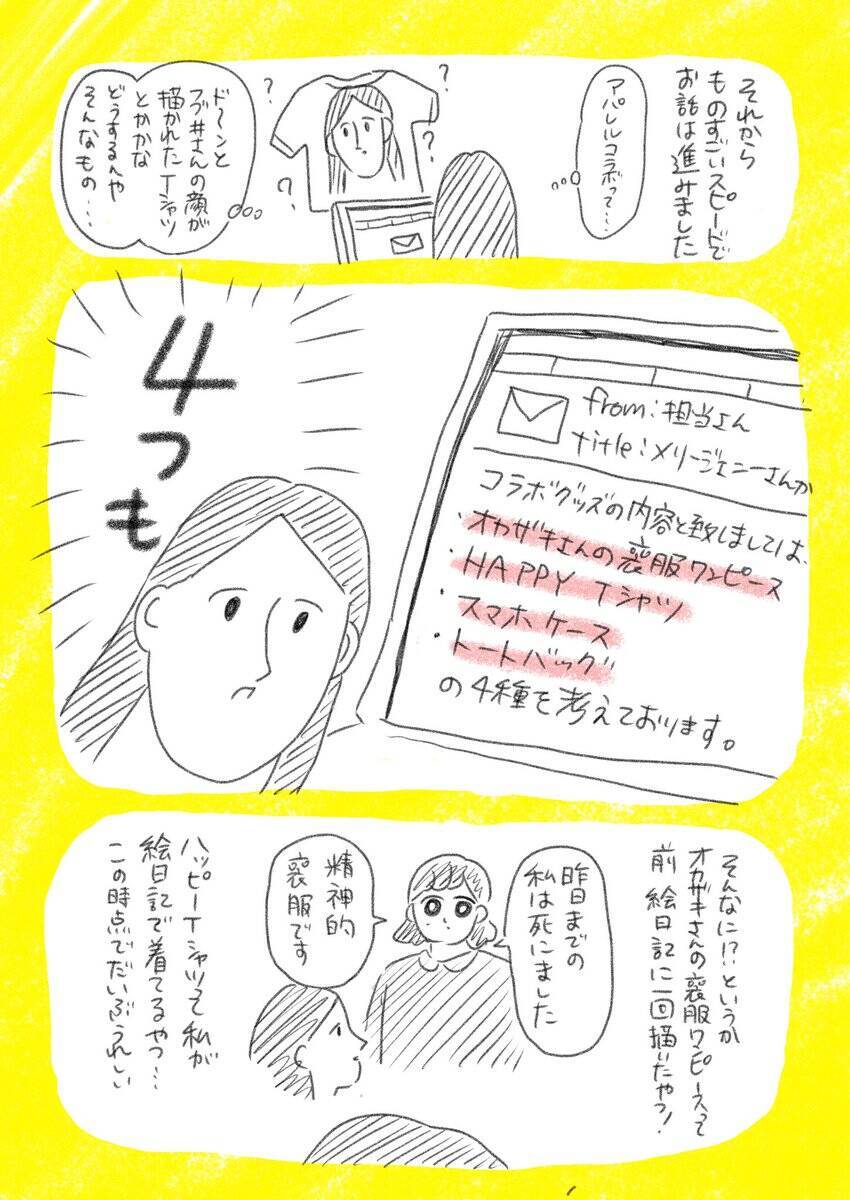 それから
ものすごいスピードで
お話は進みました
アパレルコラボって…
?
?
?
?
?
ド〜ンと
フジ井さんの顔が
描かれたTシャツ
とかかな
どうするんや
そんなもの…
4つも
from:担当さん
title:メリージェニーさんか
コラボグッズの内容と致しましては、
・オカザキさんの喪服ワンピース
・HAPPY Tシャツ
・スマホケース
・トートバッグ
の4種を考えております。
そんなに!?というか
オカザキさんの喪服ワンピースって
前 絵日記に一回描いたやつ!
昨日までの
私は死にました
精神的
喪服です
ハッピーTシャツって私が
絵日記で着てるやつ…
この時点でだいぶうれしい